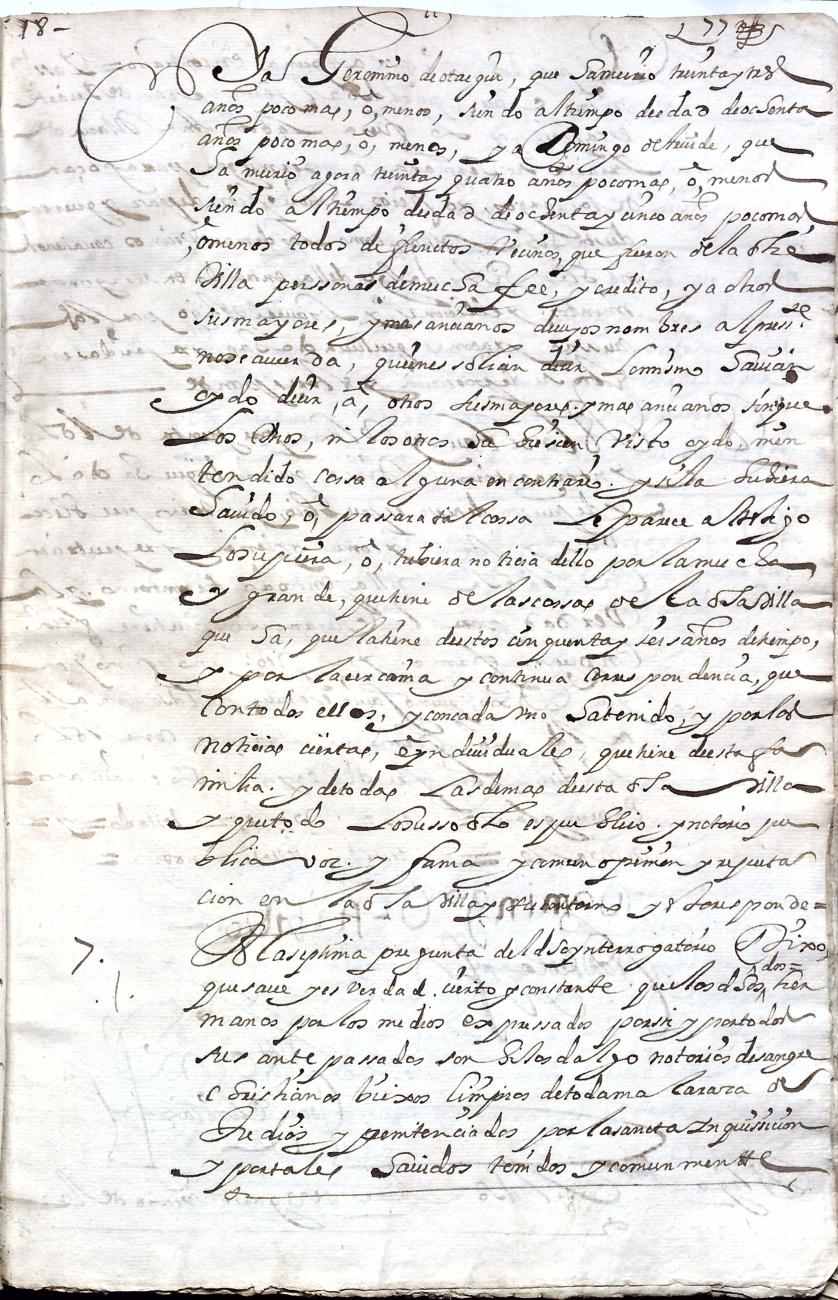 18-
Ya Geronimo de otaegui, que Sa muerio treinta y tres
años poco mas, o, menos, siendo al tiempo de edad de ochenta
años poco mas, o, menos, y a Domingo de, que
Sa murio agora treinta y quatro años poco mas, o, menos
siendo al tiempo de edad de ochenta y cinco años poco mas
o menos todos defunctos Vecinos, que fueron de la dha
Villa perssonas de mucha fee, y credito, y a otros
sus mayores, y mas ancianos de cuyos nombres al presste
no se acuerda, quienes solian decir lo mismo Savian
oydo decir, a, otros sus mayores y mas ancianos sin que
Los dhos, ni los otros Sa viesen Visto oydo, ni en
tendido cossa alguna en contrario. y si la hubiera
Savido, o, passara tal cossa le parece al testigo
Lo supiera, o, tubiera noticia dello por la mucha
y grande, que tiene de las cossas de la dha Villa
que Sa, que la tiene de estos cinquenta y seis años de tiempo,
y por la cercania y continua corresponDencia, que
Con todos ellos, y con cada uno Sa tenido, y por las
noticias ciertas, e yndividuales, que tiene de esta fa
milia. y de todas Las demas de esta dha Villa
y que todo Lo susso dho es publico. y notorio pu
blica voz. y fama y comun opinion y reputa
cion en la dha Villa y su contorno y esto responde=
7. A la septima pregunta del dho ynterrogatorio Dixo
que save y es verdad. cierto y constante que los dhos dos= her
manos por los medios expressados por si y por todos
sus antepassados son hijos dalgo notorios de sangre
christianos biexos limpios de toda mala raza de
Judios y penitenciados por la sancta Inquissicion
y por tales Savidos tenidos y comunmentte